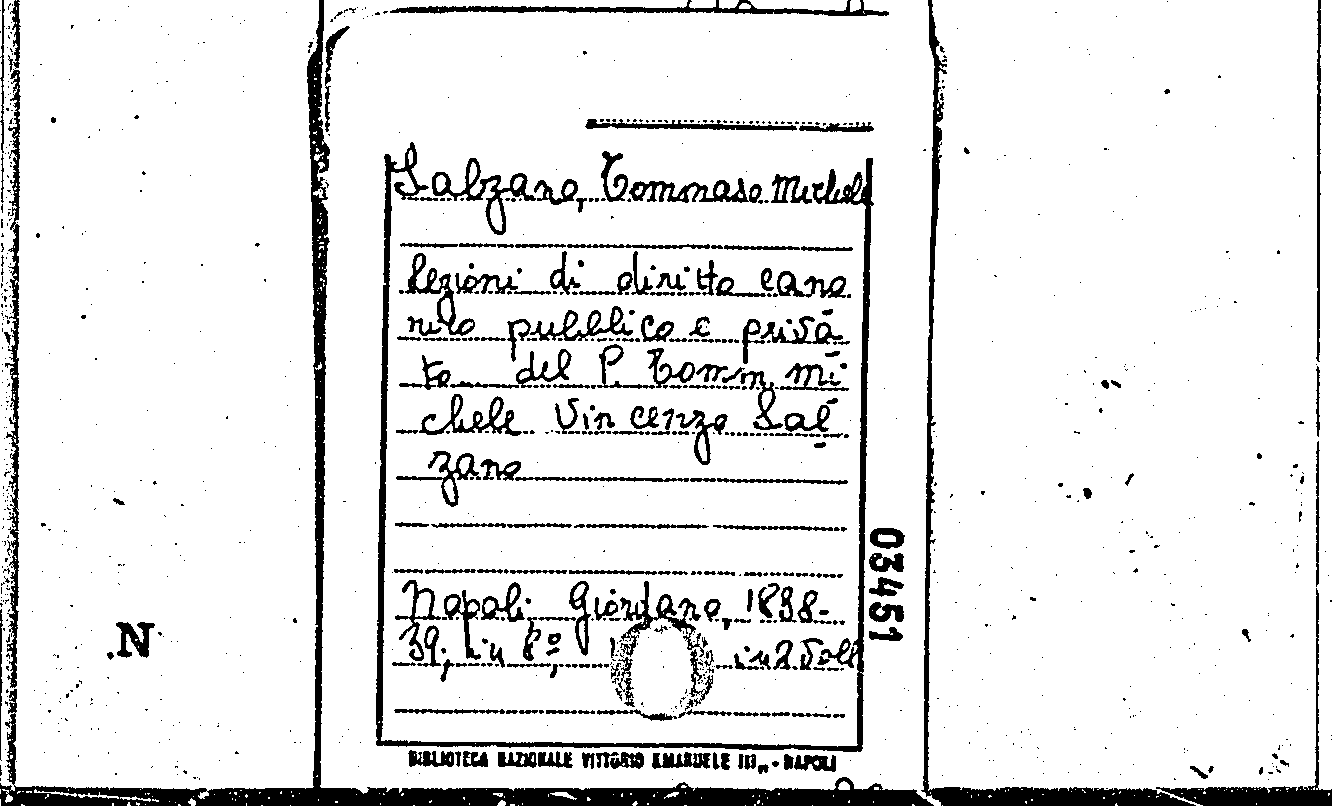 Salzano, Tommaso Michele
Lezioni di diritto cano
nico pubblico e priva
to del P. Tomm. Mi-
chele Vincenzo Sal
zano
Napoli, Giordano, 1838-
39; in 8º, in 2 voll
03451
.N
BIBLIOTECA NAZIONALE VITTORIO EMANUELE III„ - NAPOLI